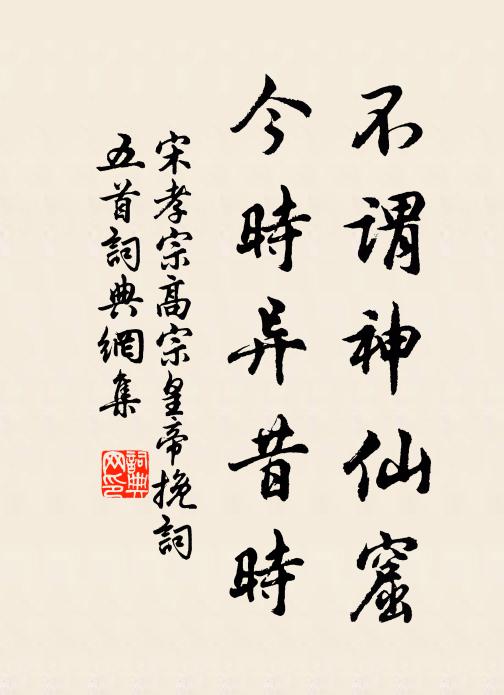 不謂神仙窟
今時异昔時
宋孝宗高宗皇帝挽詞
五首詞典網集
詞典
网印